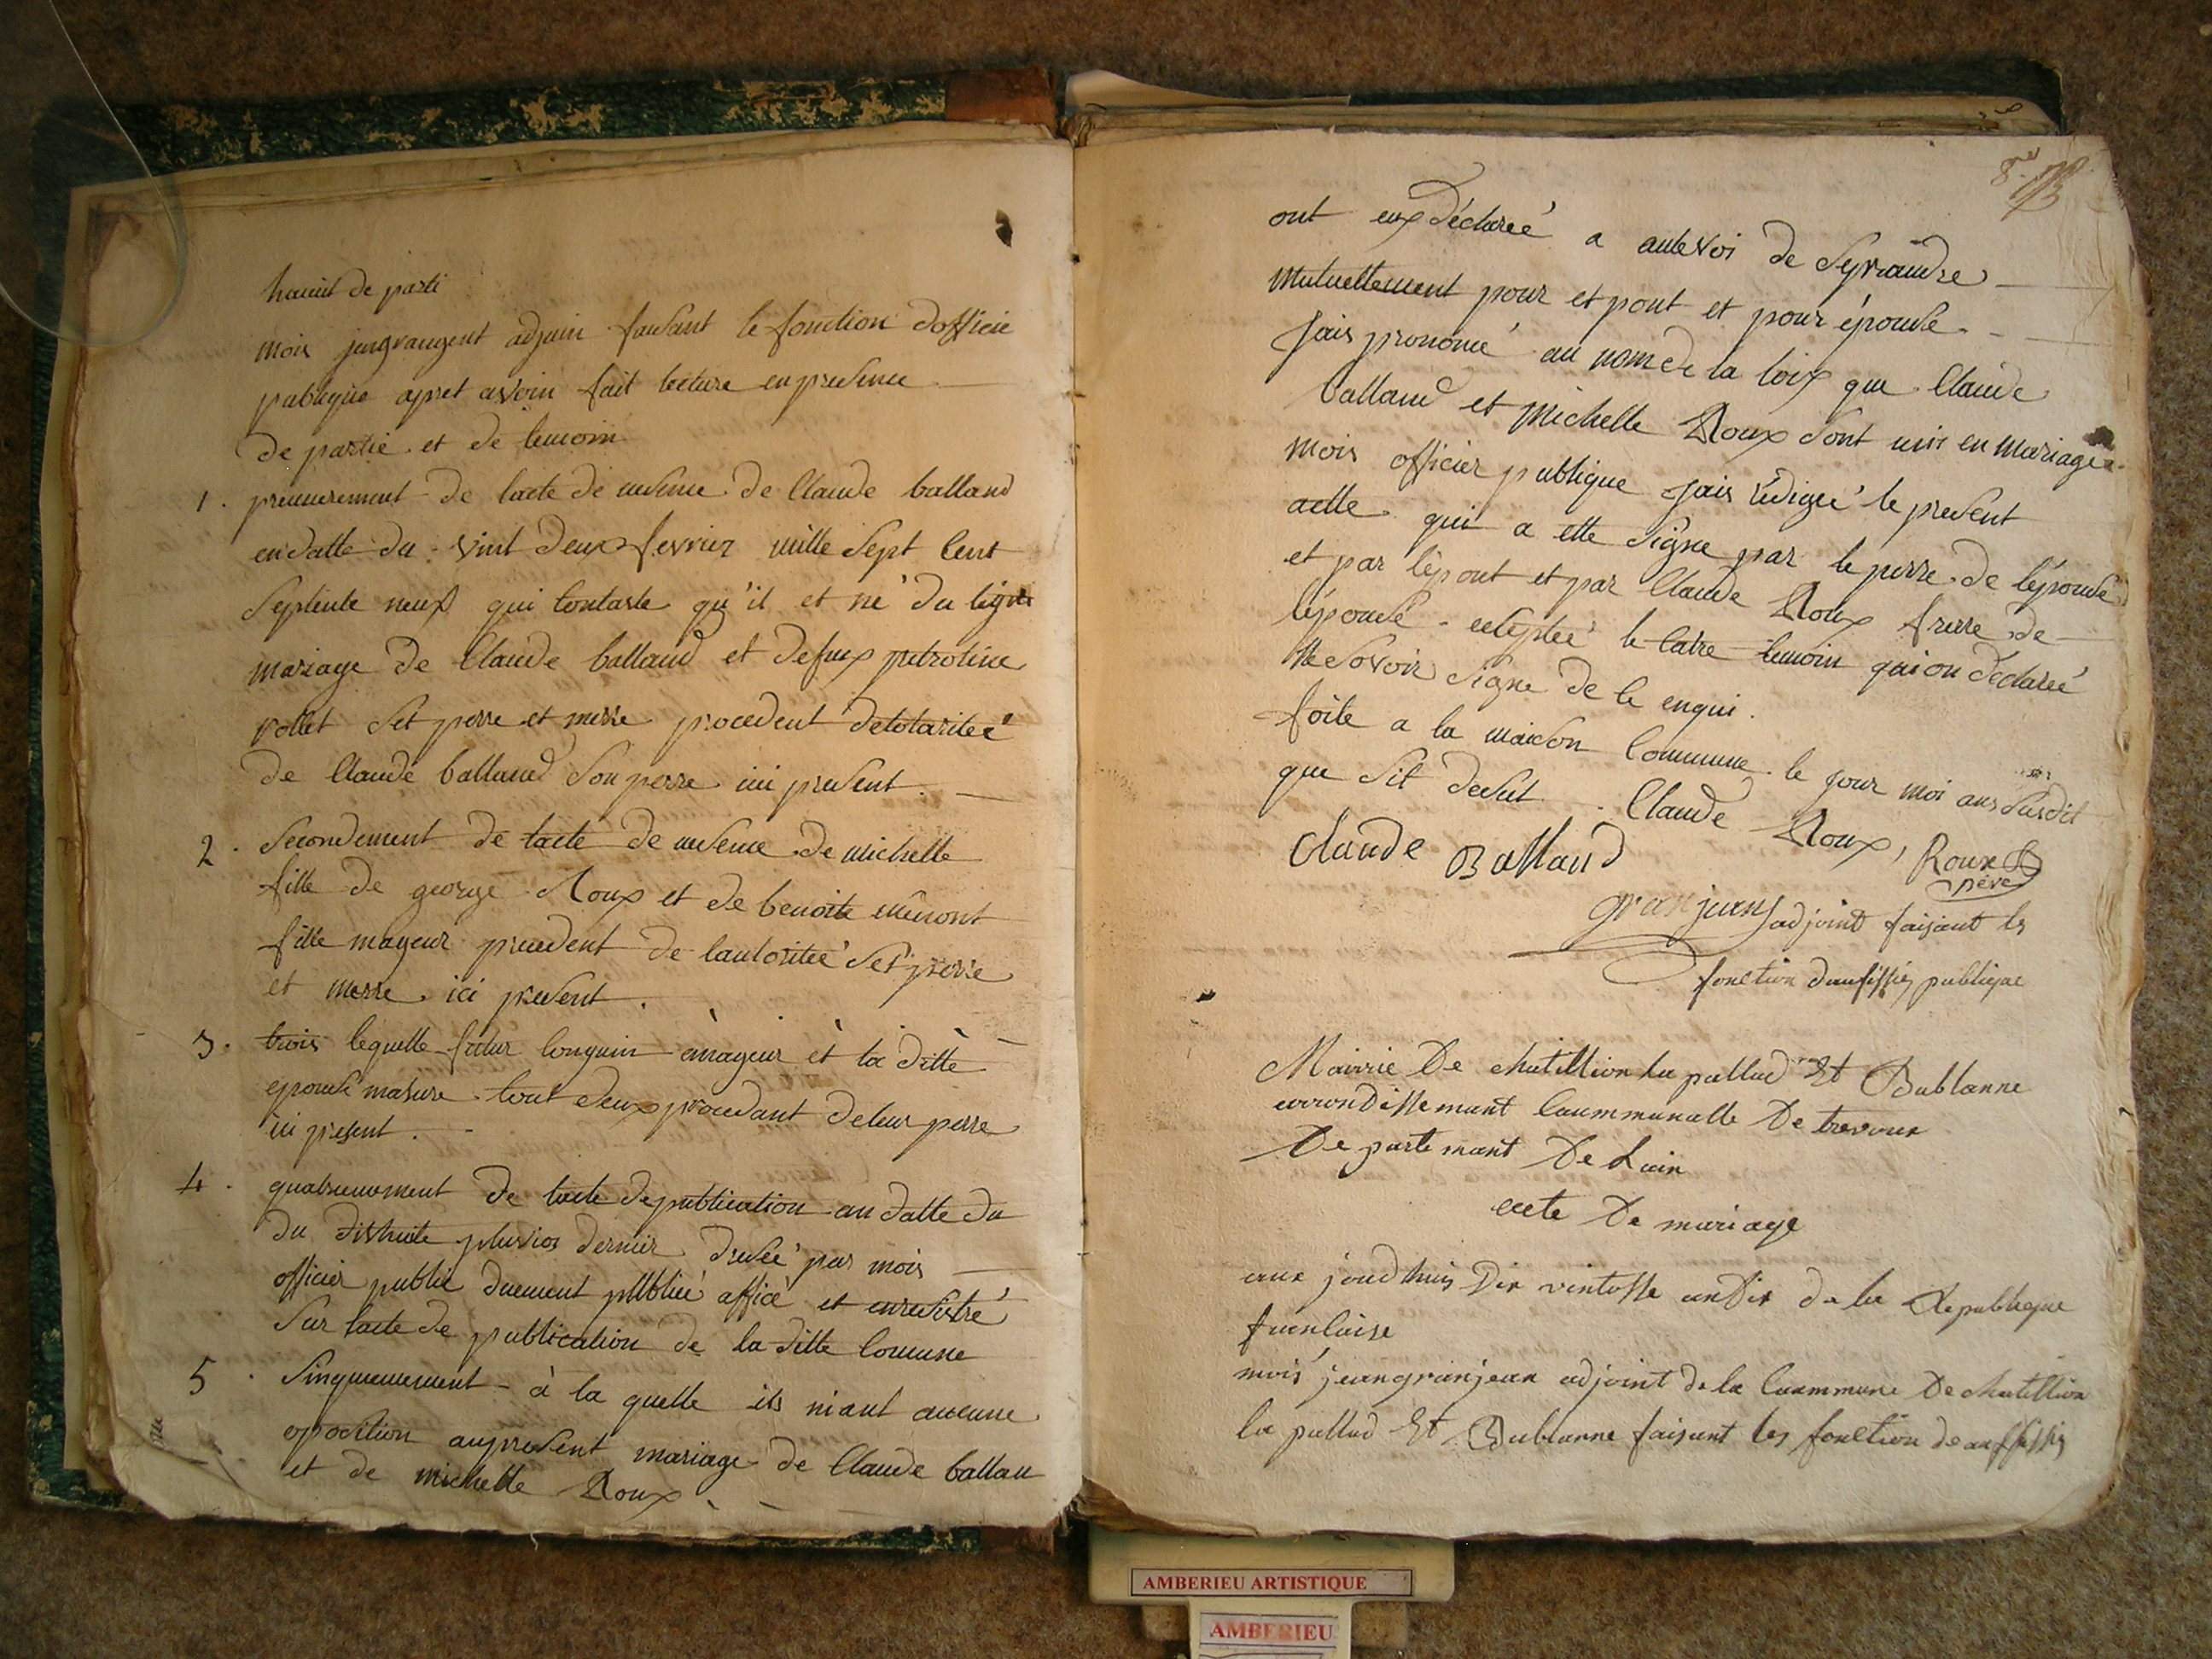 de parti
mois jengrangent adjoin faisant le fonction dofficie
publique apret avoin fait lecture en presence
de partie et de temoin
1. premierement de lacte de de Claude balland
en datte du vint deux fevrier mille sept cent
septente neuf qui contaste qu'il et né du
mariage de Claude balland et defux
vollet set perre et merre procedent
de Claude balland son perre ici present.
2. secondement de lacte de de michelle
fille de george Roux et de benoite
fille mayeur procedent de lautoritée set perre
et merre ici present.
3. trois lequelle futur mayeur et la ditte
epouse tout deux procedant de leur perre
ici present.
4. de lacte de publication an datte du
du dishuite pluvios dernier dresée par mois
officier public duement publiée affice et
sur lacte de publication de la ditte comune
5. à la quelle ils niant aucune
oposition aupresent mariage de Claude ballan
et de michelle Roux
8
ont eux déclareé a aute voi de
mutuellement pour et pout et pour épouse
jais prononcé au nom de la loix que Claude
balland et michelle Roux sont unis en mariage
mois officier publique jais rédigeé le present
actte qui a ette signe par le perre de lépouse
et par lépout et par Claude Roux frerre de
lépouse le catre temoin qui on déclareé
ne savoir signe de le enqui.
foite a la maison commune le jour moi ans susdit
que sit desut. Claude Roux, Roux
Claude Balland père
granjean adjoint faisant les
fonction publique
Mairie De chatillion la pallud Et Bublanne
arrondissemant Caummunalle De trevoux
Departemant De Lain
acte De mariage
aux joudhuis Dix vintosse an Dix de la Republique
francaise
mois jean granjean adjoint de la Caummune De chatillion
la pallud Et Bublanne faisant les fonction
AMBERIEU ARTISTIQUE
AMBERIEU